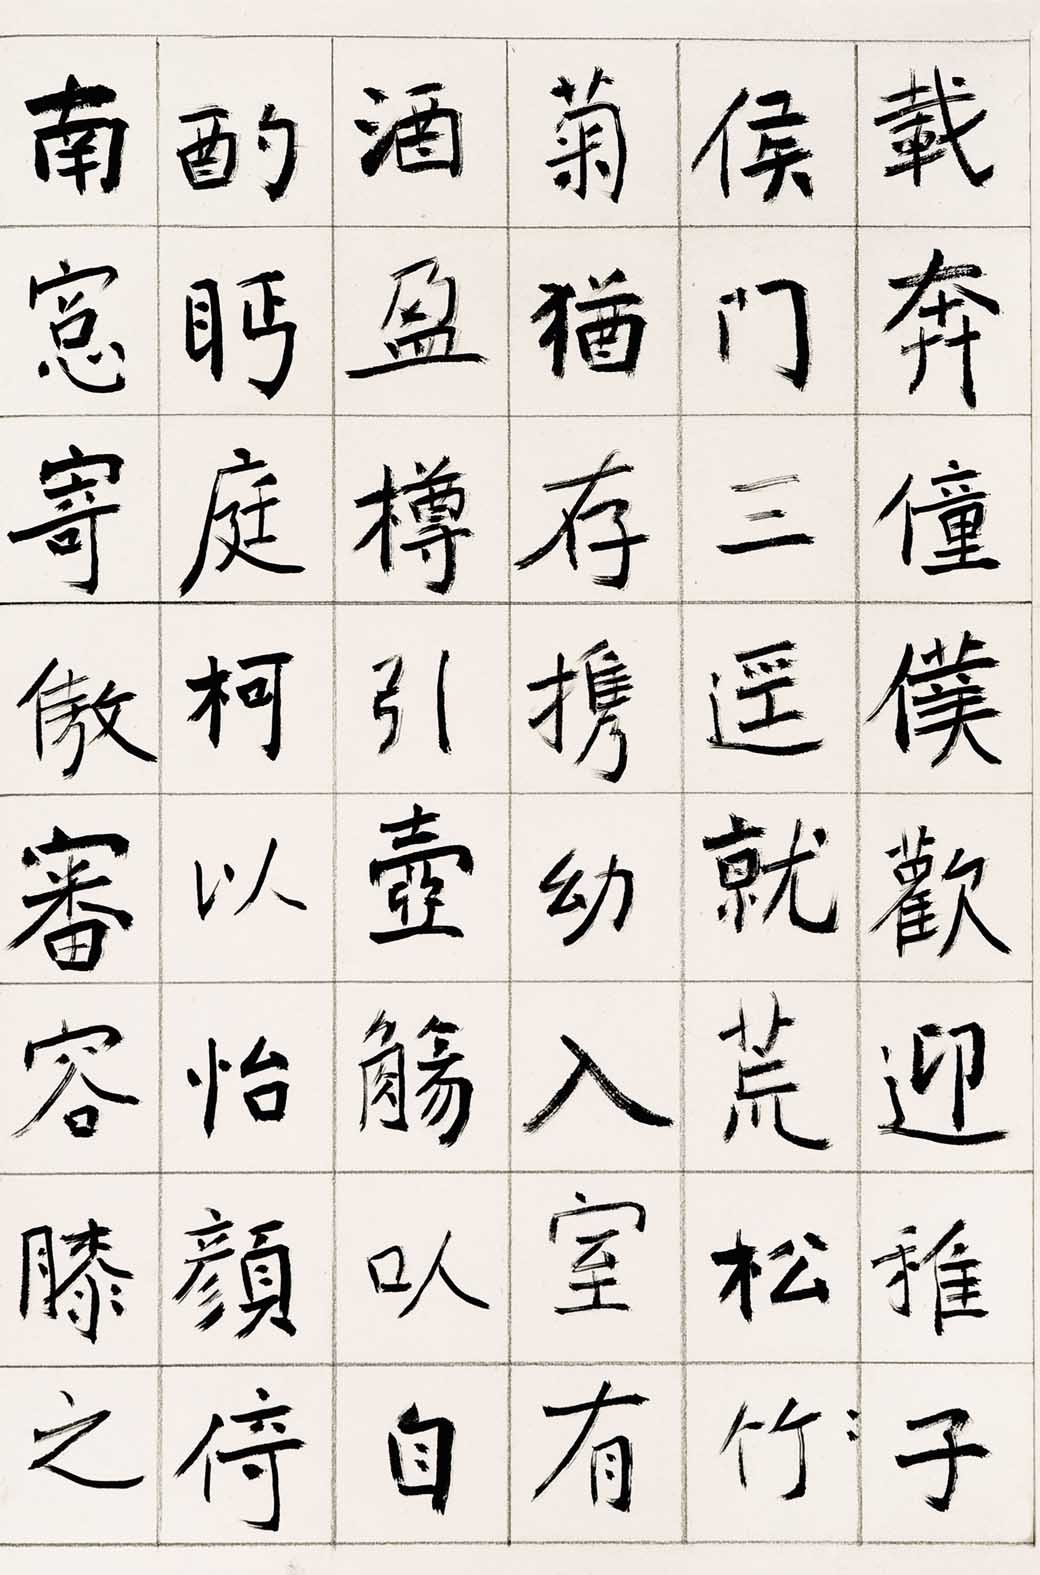 載奔僮僕歡迎稚子
侯门三逕就荒松竹
菊猶存携幼入室有
酒盈樽引壺觴以自
酌眄庭柯以怡顔倚
南窓寄傲審容膝之